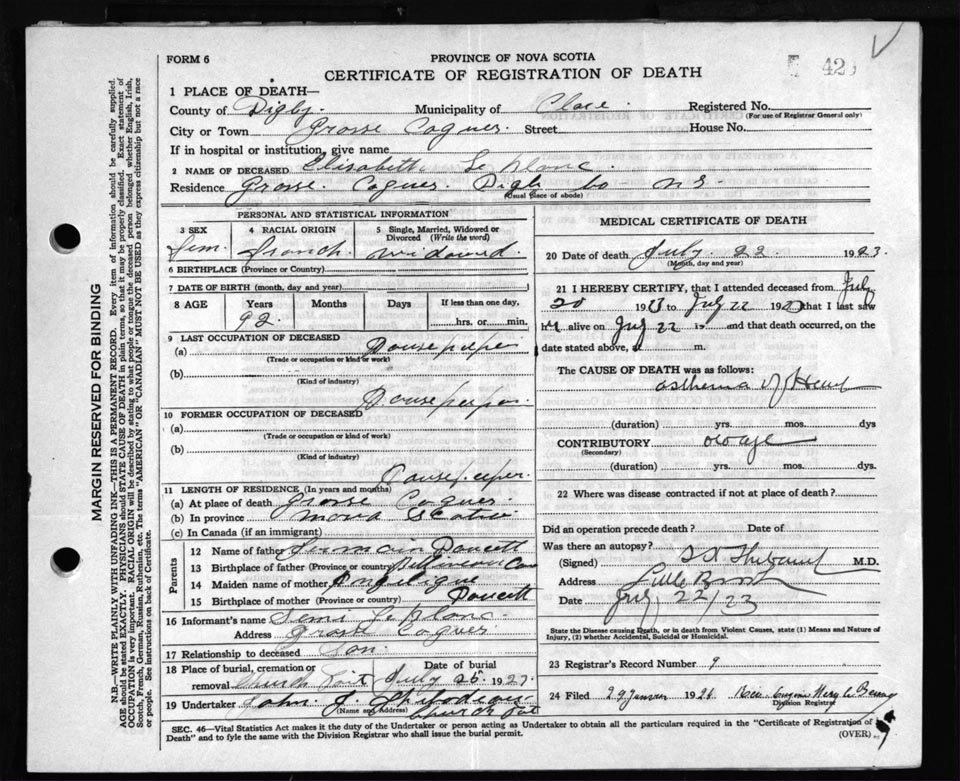 FORM 6
PROVINCE OF NOVA SCOTIA
CERTIFICATE OF REGISTRATION OF DEATH
42
1 PLACE OF DEATH—
County of Digby. Municipality of Clare. Registered No.
(For use of Registrar General only)
City or Town Grosse Coques. Street House No.
If in hospital or institution, give name
2 NAME OF DECEASED Elisabeth Le blanc.
Residence Grosse. Coques. Digb Co N S.
(Usual place of abode)
PERSONAL AND STATISTICAL INFORMATION
3 SEX 4 RACIAL ORIGIN 5 Single, Married, Widowed or Divorced (Write the word)
Fem. French. Widowed.
6 BIRTHPLACE (Province or Country)
7 DATE OF BIRTH (month, day and year)
8 AGE Years Months Days If less than one day,
92. hrs. or min.
9 LAST OCCUPATION OF DECEASED
(a) Housekeeper
(Trade or occupation or kind of work)
(b)
(Kind of industry)
Housekeeper.
10 FORMER OCCUPATION OF DECEASED
(a)
(Trade or occupation or kind of work)
(b)
(Kind of industry)
Housekeeper.
11 LENGTH OF RESIDENCE (In years and months)
(a) At place of death Grosse Coques.
(b) In province Nova Scotia
(c) In Canada (if an immigrant)
Parents
12 Name of father Germain Doucett
13 Birthplace of father (Province or country)
14 Maiden name of mother Angelique
15 Birthplace of mother (Province or country) Doucett
16 Informant's name Le blanc.
Address Grosse Coques
17 Relationship to deceased Son.
18 Place of burial, cremation or removal Church Point Date of burial July 25. 1923.
19 Undertaker John J.
(Name and address) Church Point
MEDICAL CERTIFICATE OF DEATH
20 Date of death July. 22. 1923.
(Month, day and year)
21 I HEREBY CERTIFY, that I attended deceased from July
20 1923 to July 22 1923 that I last saw
her alive on July 22 19 and that death occurred, on
date stated above, at m.
The CAUSE OF DEATH was as follows:
asthenia of Heart
(duration) yrs. mos. dys
CONTRIBUTORY old age
(Secondary)
(duration) yrs. mos. dys.
22 Where was disease contracted if not at place of death?
Did an operation precede death? Date of
Was there an autopsy?
(Signed) M.D.
Address Little Brook
Date July 22/23
State the Disease causing Death, or in death from Violent Causes, state (1) Means and Nature of Injury, (2) whether Accidental, Suicidal or Homicidal.
23 Registrar's Record Number 9
24 Filed 29 1926
Division Registrar
SEC. 46—Vital Statistics Act makes it the duty of the Undertaker or person acting as Undertaker to obtain all the particulars required in the "Certificate of Registration of
Death" and to fyle the same with the Division Registrar who shall issue the burial permit. (OVER)
MARGIN RESERVED FOR BINDING
N.B.—WRITE PLAINLY WITH UNFADING INK—THIS IS A PERMANENT RECORD. Every item of information should be carefully supplied.
AGE should be stated EXACTLY. PHYSICIANS should STATE CAUSE OF DEATH in plain terms, so that it may be properly classified. Exact statement of
OCCUPATION is very important. RACIAL ORIGIN will be described by stating to what people or tongue the deceased person belonged whether English, Irish,
Scotch, French, German, Russian, Ruthenian, etc. The terms "AMERICAN" or "CANADIAN" MUST NOT BE USED as they express citizenship but not a race
or people. See instructions on back of Certificate.